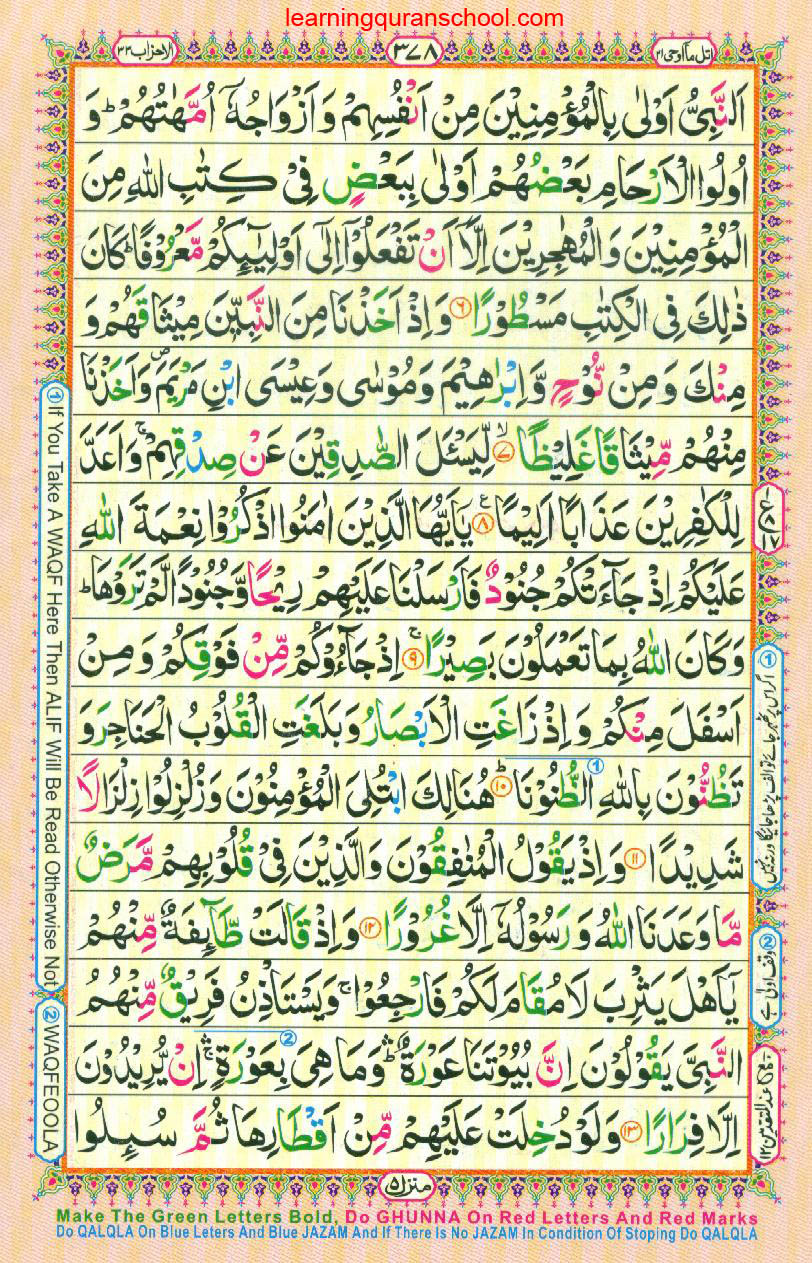 learningquranschool.com
الاحزاب ٣٣
٣٧٨
اتل مآ اوحی ٢١
اَلنَّبِیُّ اَوْلٰى بِالْمُؤْمِنِیْنَ مِنْ اَنْفُسِهِمْ وَ اَزْوَاجُهٗۤ اُمَّهٰتُهُمْ ؕ وَ
اُولُوا الْاَرْحَامِ بَعْضُهُمْ اَوْلٰى بِبَعْضٍ فِیْ كِتٰبِ اللّٰهِ مِنَ
الْمُؤْمِنِیْنَ وَ الْمُهٰجِرِیْنَ اِلَّاۤ اَنْ تَفْعَلُوْۤا اِلٰۤى اَوْلِیٰٓىِٕكُمْ مَّعْرُوْفًا ؕ كَانَ
ذٰلِكَ فِی الْكِتٰبِ مَسْطُوْرًا ۶ وَ اِذْ اَخَذْنَا مِنَ النَّبِیّٖنَ مِیْثَاقَهُمْ وَ
مِنْكَ وَ مِنْ نُّوْحٍ وَّ اِبْرٰهِیْمَ وَ مُوْسٰى وَ عِیْسَى ابْنِ مَرْیَمَ ۪ وَ اَخَذْنَا
مِنْهُمْ مِّیْثَاقًا غَلِیْظًا ۙ ۷ لِّیَسْـَٔلَ الصّٰدِقِیْنَ عَنْ صِدْقِهِمْ ۚ وَ اَعَدَّ
لِلْكٰفِرِیْنَ عَذَابًا اَلِیْمًا ۠ ۸ یٰۤاَیُّهَا الَّذِیْنَ اٰمَنُوا اذْكُرُوْا نِعْمَةَ اللّٰهِ
عَلَیْكُمْ اِذْ جَآءَتْكُمْ جُنُوْدٌ فَاَرْسَلْنَا عَلَیْهِمْ رِیْحًا وَّ جُنُوْدًا لَّمْ تَرَوْهَا ؕ
وَ كَانَ اللّٰهُ بِمَا تَعْمَلُوْنَ بَصِیْرًا ۚ ۹ اِذْ جَآءُوْكُمْ مِّنْ فَوْقِكُمْ وَ مِنْ
اَسْفَلَ مِنْكُمْ وَ اِذْ زَاغَتِ الْاَبْصَارُ وَ بَلَغَتِ الْقُلُوْبُ الْحَنَاجِرَ وَ
تَظُنُّوْنَ بِاللّٰهِ الظُّنُوْنَا ؕ ۱۰ هُنَالِكَ ابْتُلِیَ الْمُؤْمِنُوْنَ وَ زُلْزِلُوْا زِلْزَالًا
شَدِیْدًا ۱۱ وَ اِذْ یَقُوْلُ الْمُنٰفِقُوْنَ وَ الَّذِیْنَ فِیْ قُلُوْبِهِمْ مَّرَضٌ
مَّا وَعَدَنَا اللّٰهُ وَ رَسُوْلُهٗۤ اِلَّا غُرُوْرًا ۱۲ وَ اِذْ قَالَتْ طَّآىِٕفَةٌ مِّنْهُمْ
یٰۤاَهْلَ یَثْرِبَ لَا مُقَامَ لَكُمْ فَارْجِعُوْا ۚ وَ یَسْتَاْذِنُ فَرِیْقٌ مِّنْهُمُ
النَّبِیَّ یَقُوْلُوْنَ اِنَّ بُیُوْتَنَا عَوْرَةٌ ۛؕ وَ مَا هِیَ بِعَوْرَةٍ ۛۚ اِنْ یُّرِیْدُوْنَ
اِلَّا فِرَارًا ۱۳ وَ لَوْ دُخِلَتْ عَلَیْهِمْ مِّنْ اَقْطَارِهَا ثُمَّ سُىِٕلُوا
① If You Take A WAQF Here Then ALIF Will Be Read Otherwise Not
② WAQFEOOLA
②وقف اولی ہے
منزل ۵
Make The Green Letters Bold, Do GHUNNA On Red Letters And Red Marks
Do QALQLA On Blue Leters And Blue JAZAM And If There Is No JAZAM In Condition Of Stoping Do QALQLA